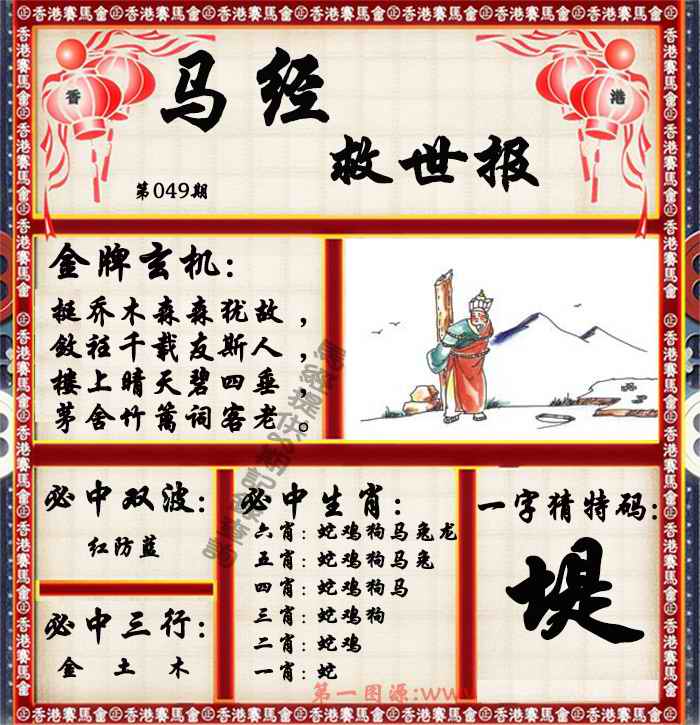 香港賽馬會
香 港
马经
救世报
第049期
金牌玄机:
挺乔木森森犹故,
敛衽千载友斯人,
楼上晴天碧四垂,
茅舍竹篱词客老。
必中双波:
红防蓝
必中三行:
金 土 木
必中生肖:
六肖:蛇鸡狗马兔龙
五肖:蛇鸡狗马兔
四肖:蛇鸡狗马
三肖:蛇鸡狗
二肖:蛇鸡
一肖:蛇
一字猜特码:
堤
第一图源:www